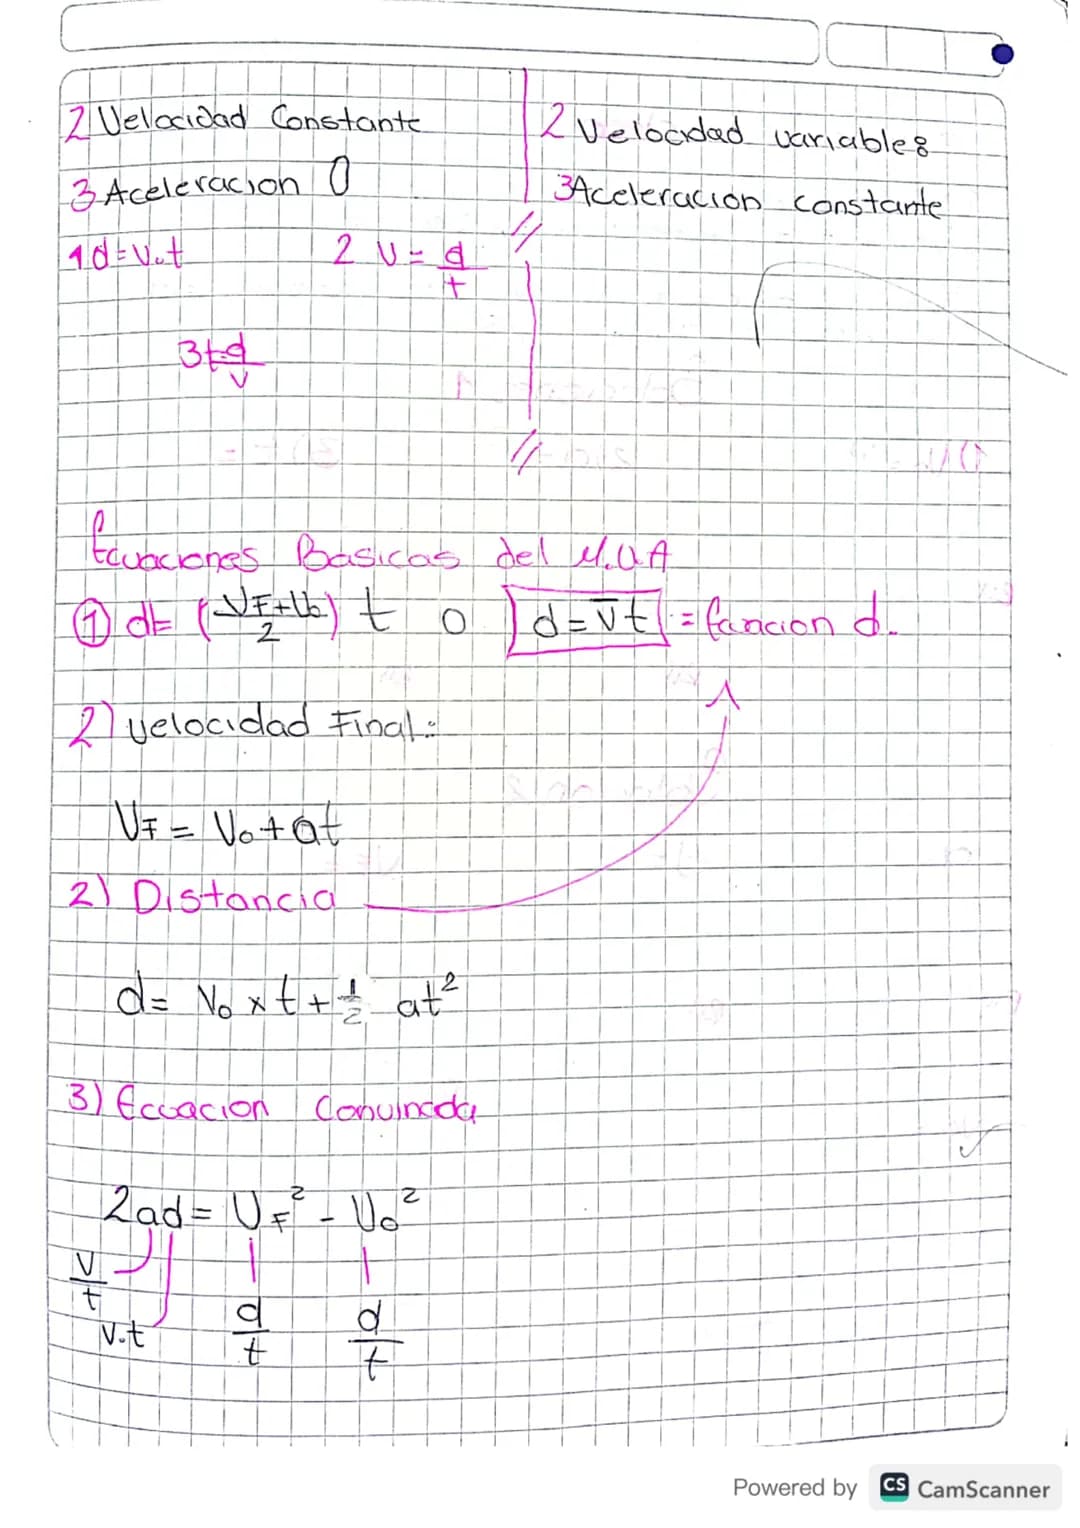 2 Velocidad Constante
3 Aceleracion 0
1 d = v.t 2 V = d/t
3 t = d/v
2 Velocidad variable8
3 Aceleracion constante
Ecuaciones Basicas del M.U.A
① d= (VF+Vo/2) t o d = v̅ t = funcion d.
2) Velocidad Final:
VF = Vo + at
2) Distancia
d= Vo x t + 1/2 at²
3) Ecuacion Convinada
2ad = VF² - Vo²
V/t
v.t d/t d/t
Powered by CS CamScanner